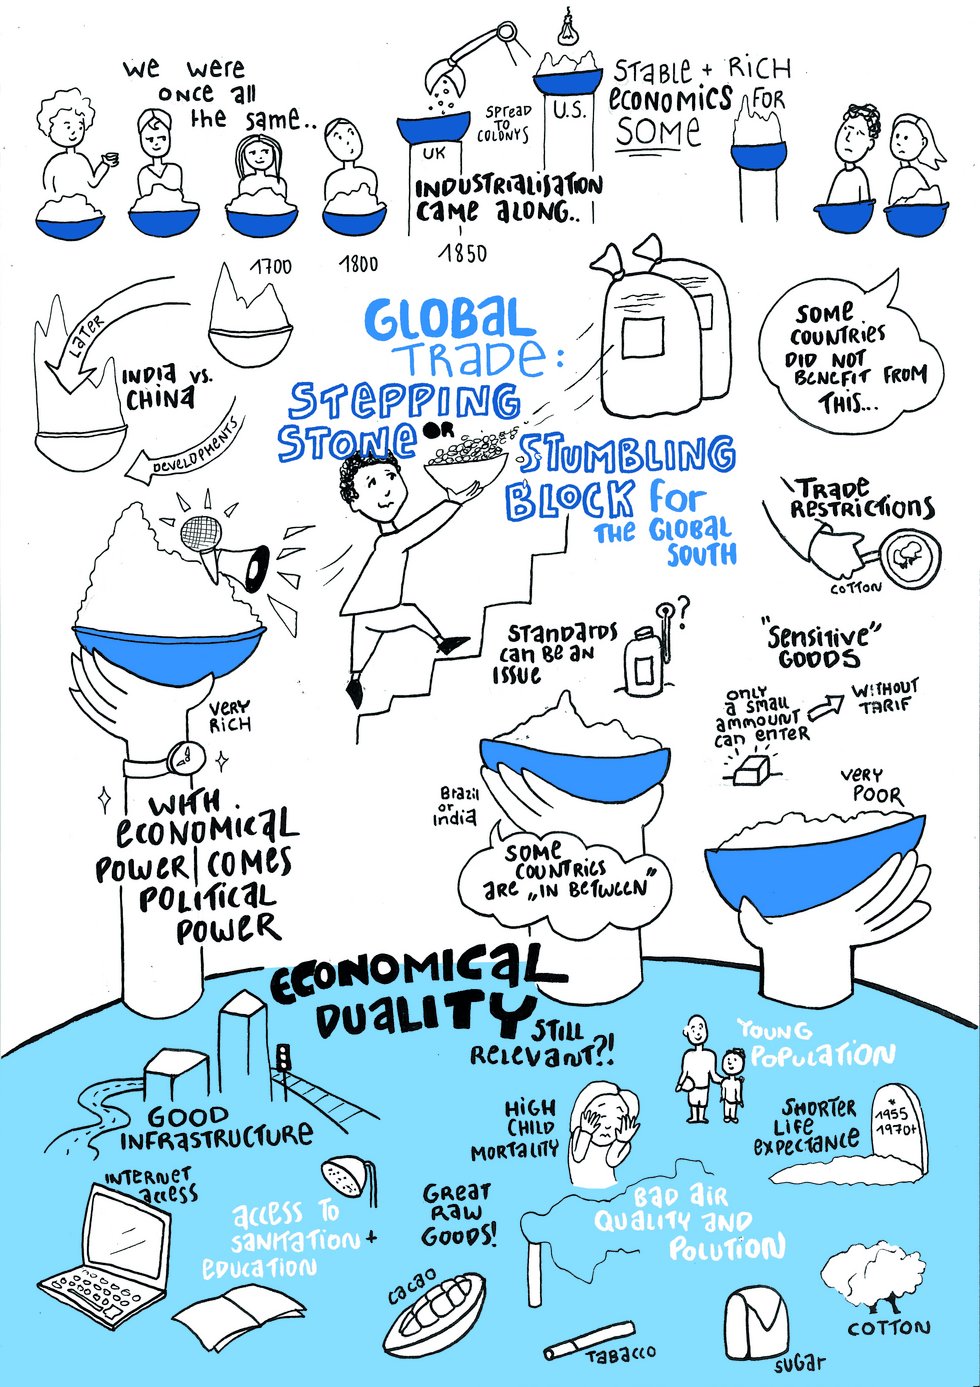 We were
once all
the same..
UK
SPREAD
TO
COLONYS
U.S.
INDUSTRIALISATION
CAME ALONG..
STABLE + RICH
ECONOMICS FOR
SOME
1700
1800
1850
LATER
INDIA vs.
CHINA
DEVELOPMENTS
GLOBAL
TRADE:
STEPPING
STONE OR
STUMBLING
BLOCK for
THE GLOBAL
SOUTH
SOME
COUNTRIES
DID NOT
BENEFIT FROM
THIS...
TRADE
RESTRICTIONS
COTTON
STANDARDS
can BE AN
ISSUE
?
"Sensitive"
GOODS
ONLY
a small
ammount
can enter
WITHOUT
TARIF
VERY
RICH
WITH
ECONOMICAL
POWER COMES
POLITICAL
POWER
Brazil
or
India
SOME
COUNTRIES
are „IN BETWEEN"
VERY
POOR
ECONOMICAL
DUALITY
STILL
RELEVANT?!
GOOD
INFRASTRUCTURE
INTERNET
access
ACCESS TO
SANITATION +
EDUCATION
HIGH
CHILD
MORTALITY
YOUNG
POPULATION
SHORTER
LIFE
EXPECTANCE
* 1955
1970+
GREAT
RAW
GOODS!
BAD AIR
QUALITY AND
POLUTION
cacao
TABACCO
SUGAR
COTTON